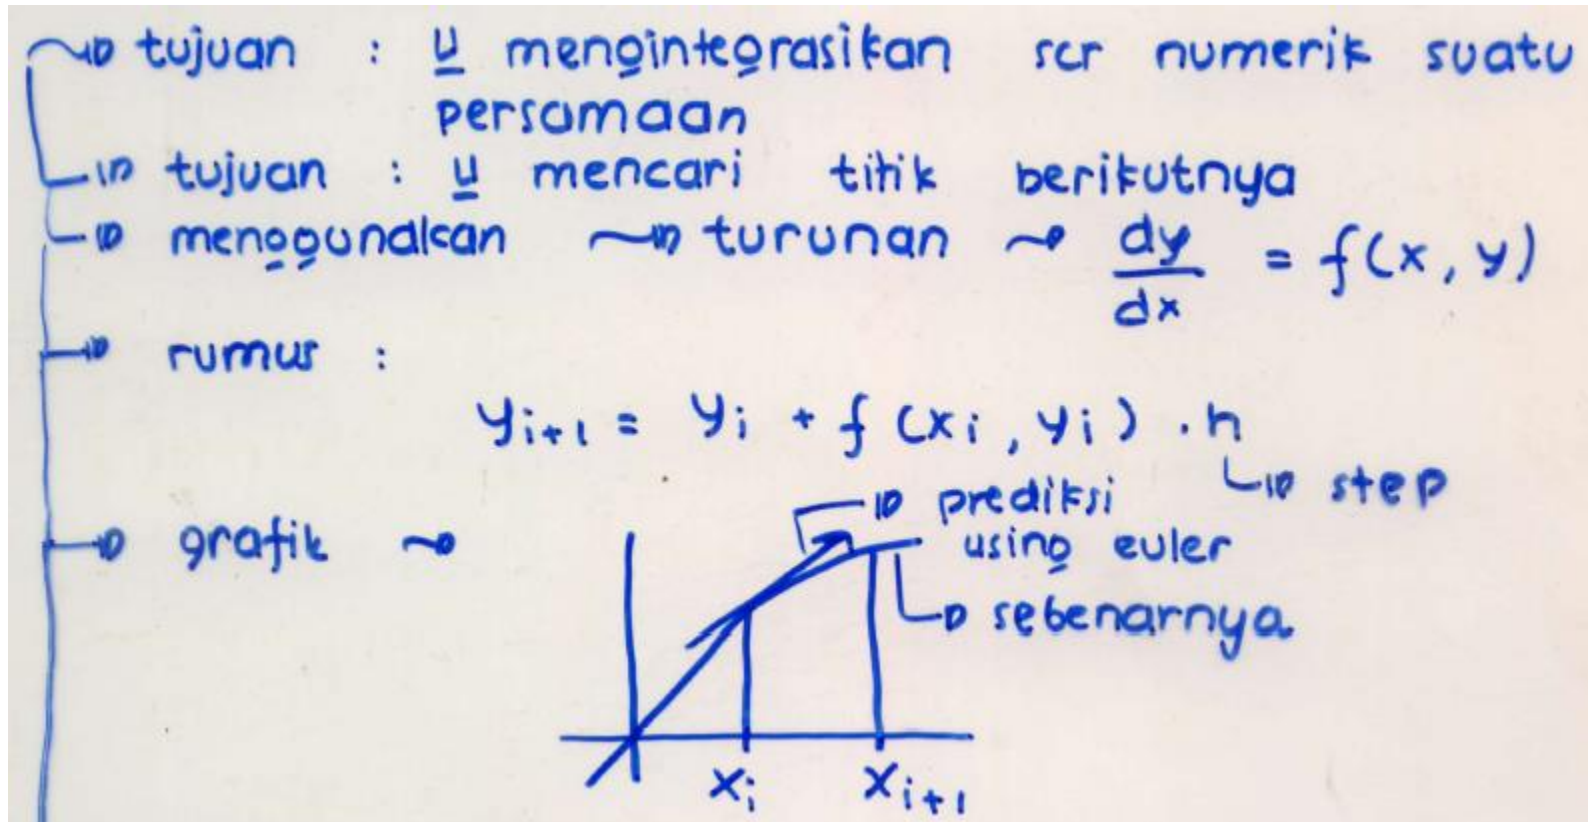 tujuan : u mengintegrasikan scr numerik suatu
persamaan
tujuan : u mencari titik berikutnya
menggunakan turunan dy/dx = f(x, y)
rumus :
yi+1 = yi + f (xi, yi) . h
step
grafik
prediksi
using euler
sebenarnya
xi xi+1